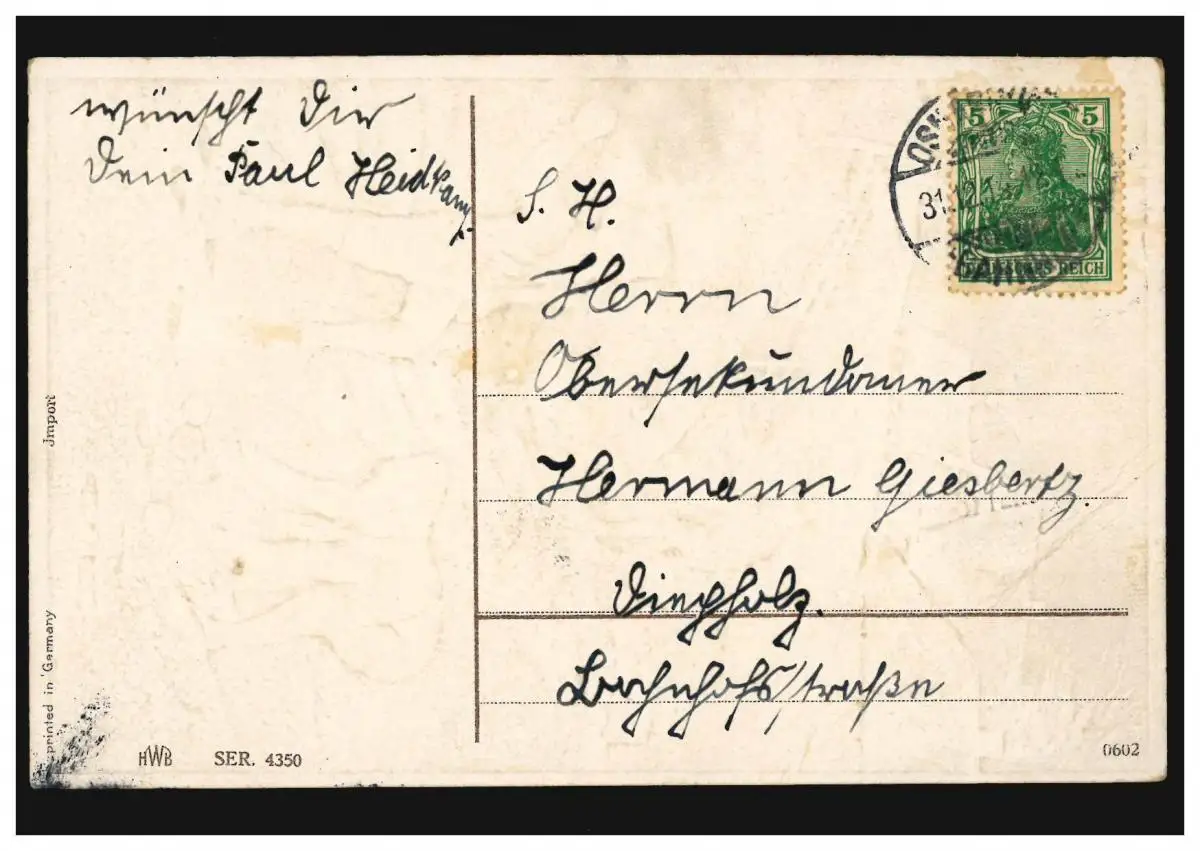 wünscht Dir
Dein Paul Heidkamp.
S. H.
Herrn
Obersekundaner
Hermann Giesbertz.
Diepholz.
Bahnhofstraße
5 5
DEUTSCHES REICH
31.12.1
Import
printed in Germany
HWB SER. 4350
0602